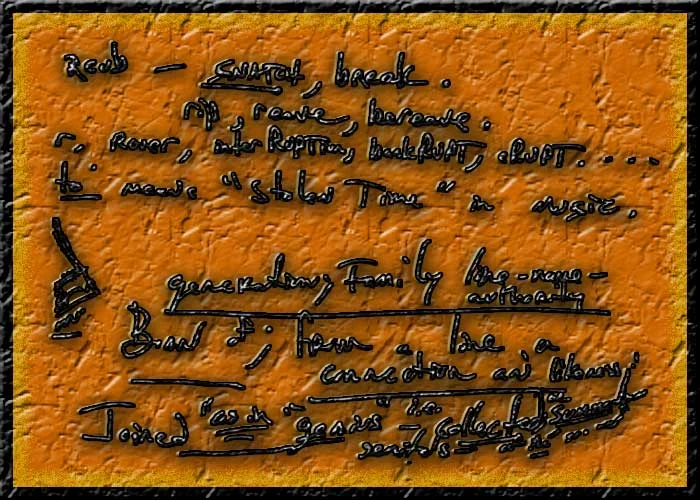 Reub — SNATCH, break.
rip, reave, bereave.
r, Rover, interRUPTion, bankRUPT, eRUPT. . . .
to means "Stolen Time" in music.
generation, Family line-name-
authority
Bind I; form a line a
connection and
Joined "as in genius" i.e. collected